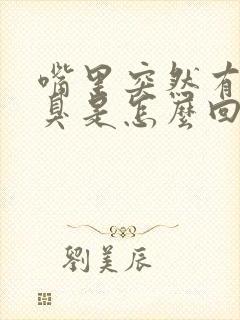 嘴里突然有
臭是怎麼回
劉美辰